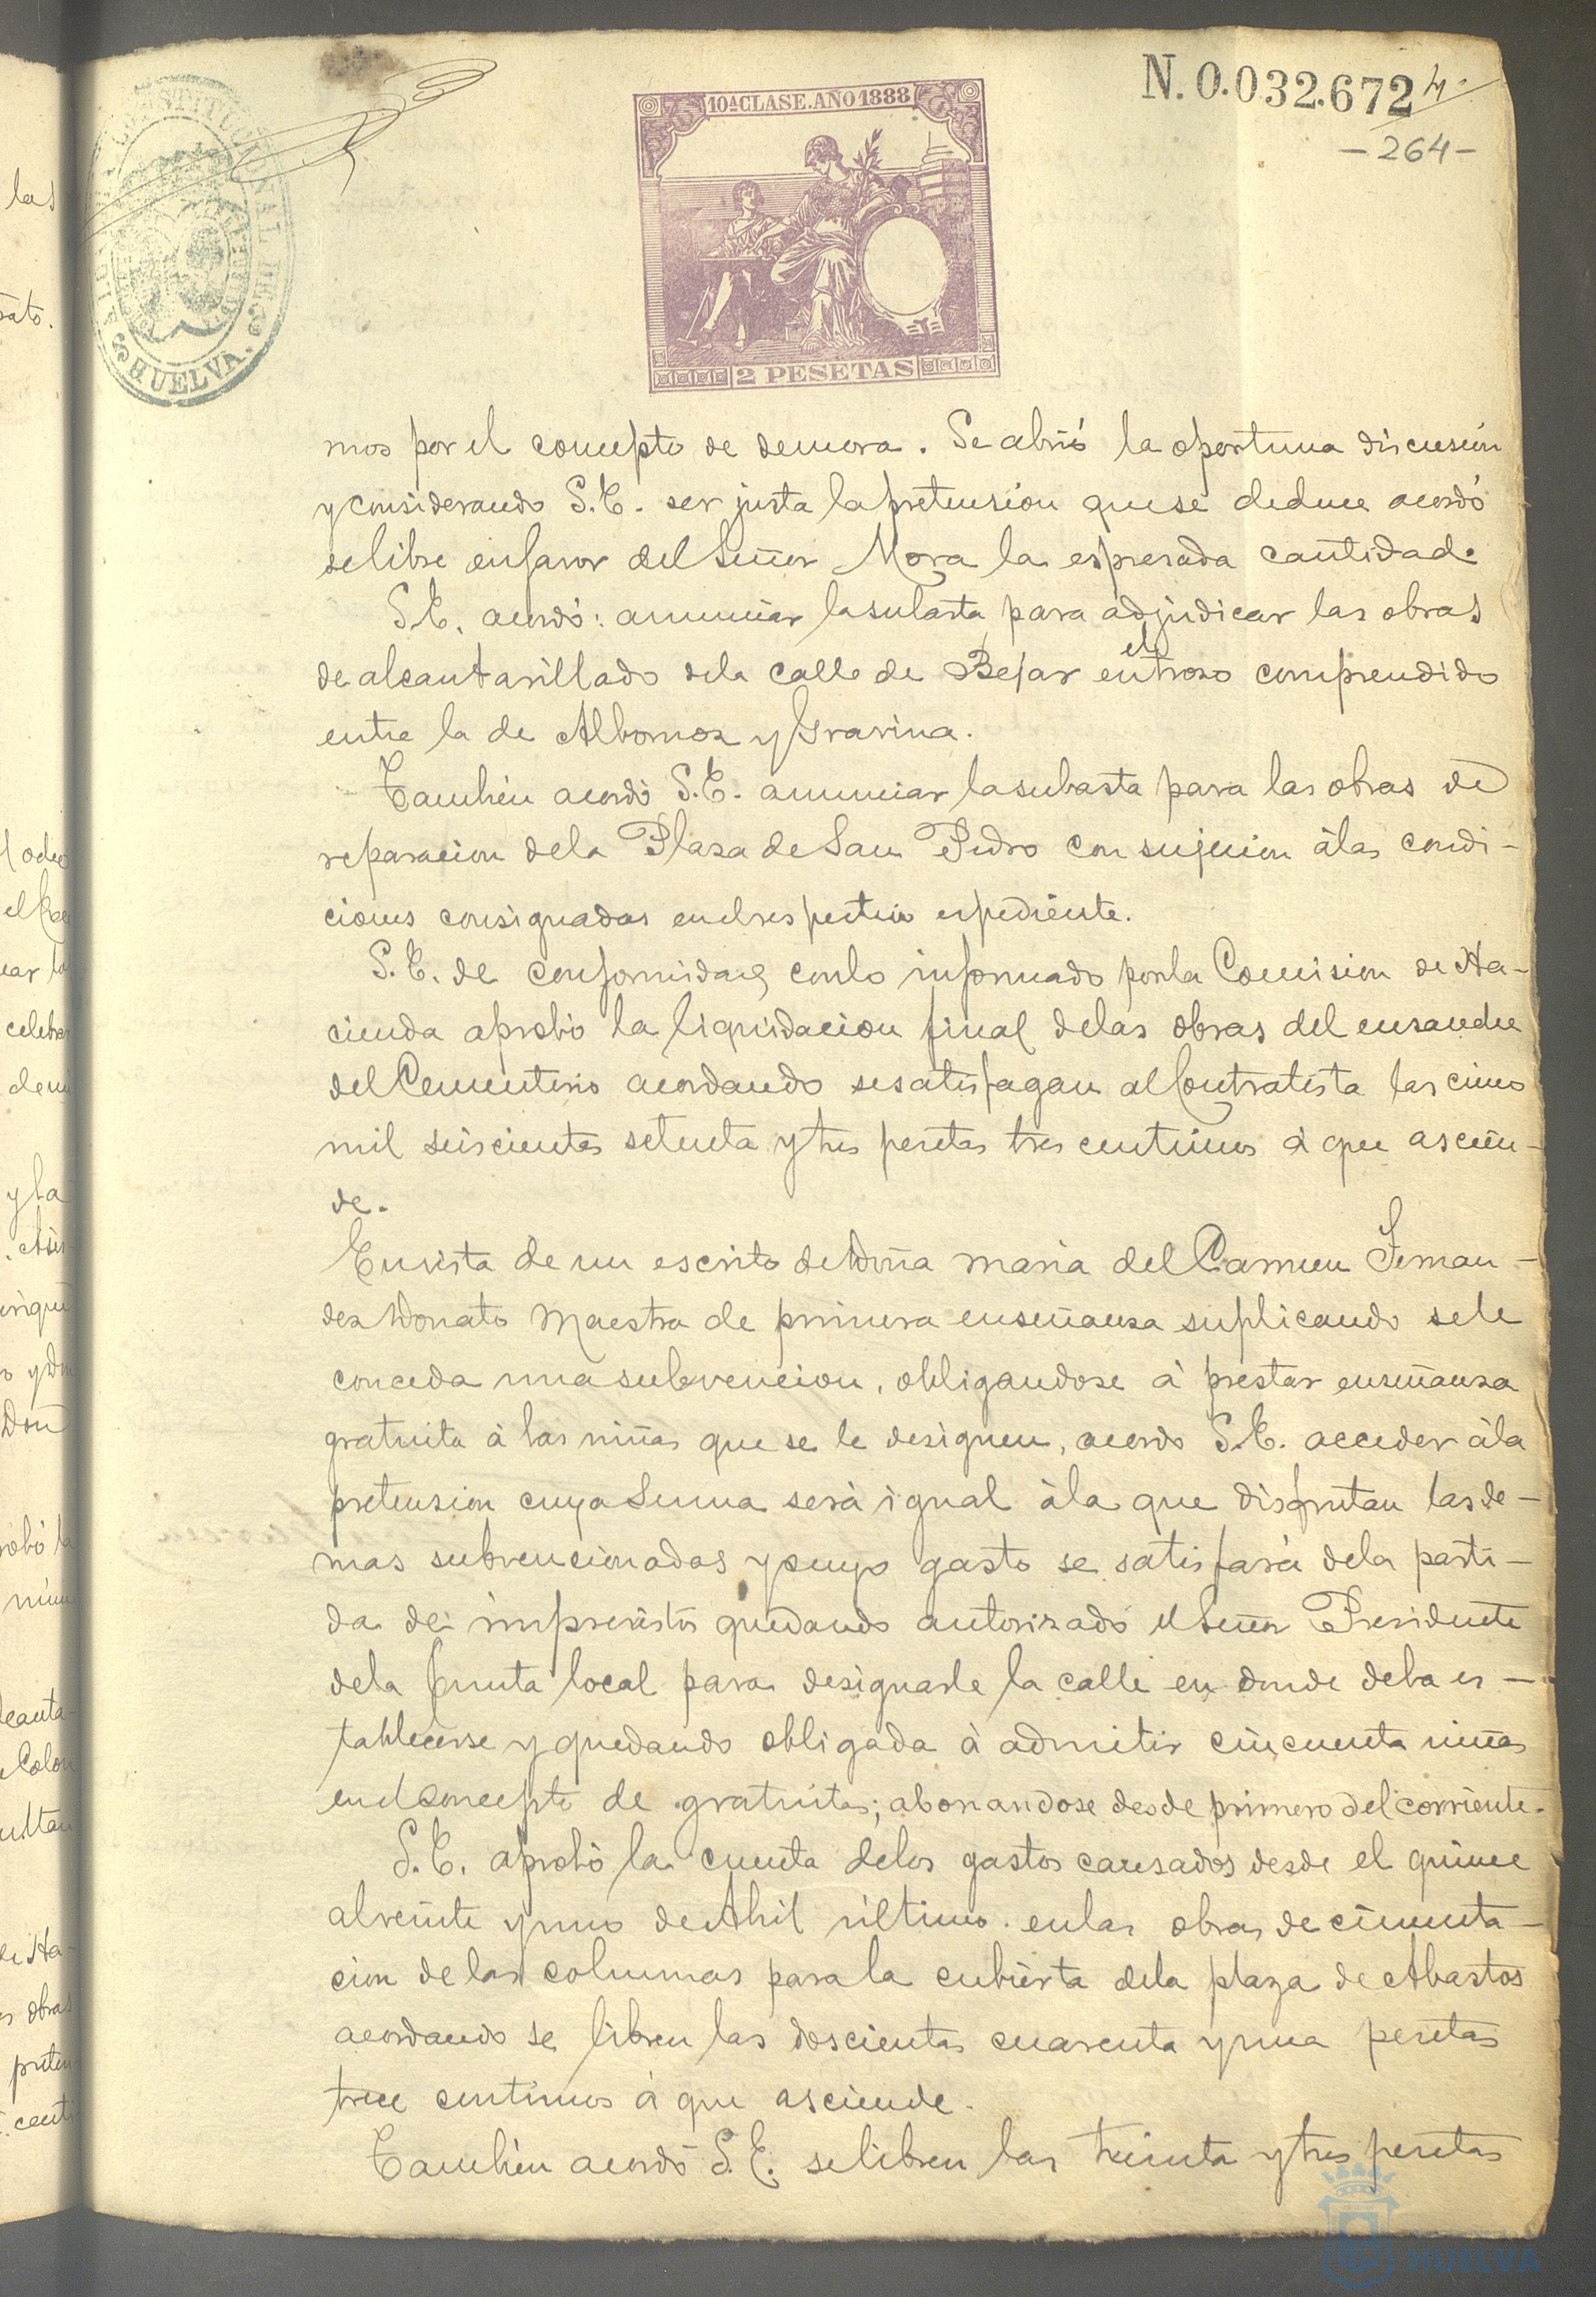 N.0.032.672
4.
-264-
10ª CLASE. AÑO 1888
2 PESETAS
HUELVA.
mos por el concepto de demora. Se abrió la oportuna discusión
y considerando S.E. ser justa la pretensión que se deduce acordó
se libre en favor del Señor Mora la espresada cantidad.
S.E. acordó: anunciar la subasta para adjudicar las obras
de alcantarillado de la calle de Bejar en el troso comprendido
entre la de Albornoz y Gravina.
Tambien acordó S.E. anunciar la subasta para las obras de
reparacion de la Plaza de San Pedro con sujecion á las condi-
ciones consignadas en el respectivo espediente.
S.E. de conformidad con lo informado por la Comision de Ha-
cienda aprobó la liquidacion final de las obras del ensanche
del Cementerio acordando se satisfagan al Contratista las cinco
mil seiscientas setenta y tres pesetas tres centimos á que ascien-
de.
En vista de un escrito de Doña Maria del Carmen Fernan-
dez Donato Maestra de primera enseñanza suplicando se le
conceda una subvencion, obligandose á prestar enseñanza
gratuita á las niñas que se le designen, acordó S.E. acceder á la
pretension cuya suma será igual á la que disfrutan las de-
mas subvencionadas y cuyo gasto se satisfará de la parti-
da de imprevistos quedando autorizado el Señor Presidente
de la Junta local para designarle la calle en donde deba es-
tablecerse y quedando obligada á admitir cincuenta niñas
en el concepto de gratuitas; abonandose desde primero del corriente.
S.E. aprobó la cuenta de los gastos causados desde el quince
al veinte y uno de Abril último en las obras de cimenta-
cion de las columnas para la cubierta de la plaza de Abastos
acordando se libren las doscientas cuarenta y una pesetas
trece centimos á que asciende.
Tambien acordó S.E. se libren las treinta y tres pesetas
HUELVA